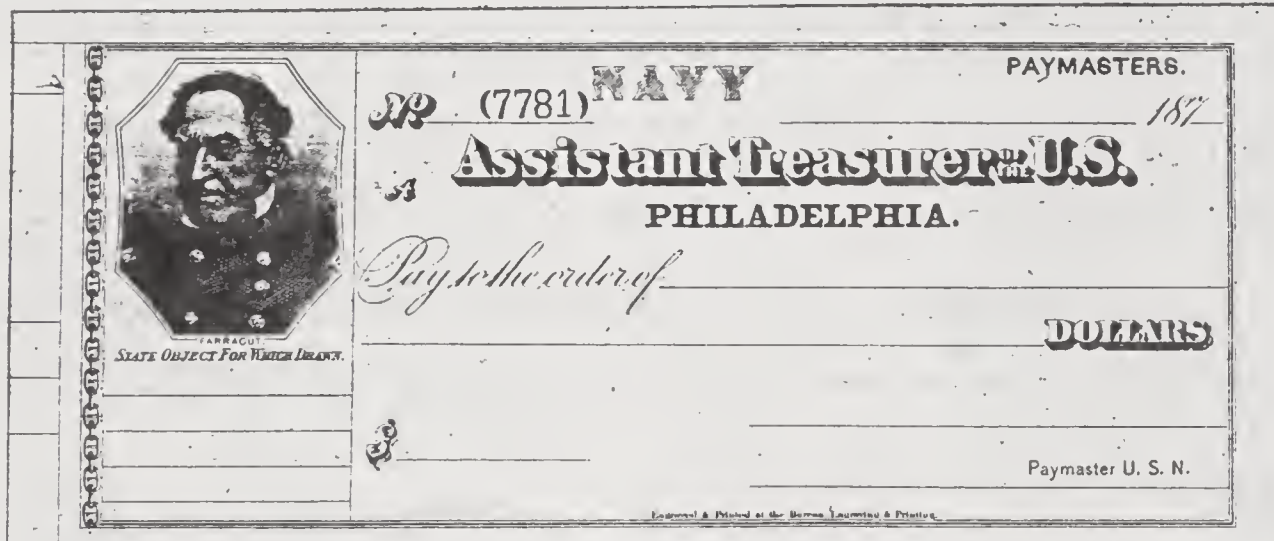 NAVY PAYMASTERS.
No. (7781) 187
A Assistant Treasurer OF THE U.S.
PHILADELPHIA.
Pay to the order of
DOLLARS
FARRAGUT.
STATE OBJECT FOR WHICH DRAWN.
$
Paymaster U. S. N.
Engraved & Printed at the Bureau Engraving & Printing.